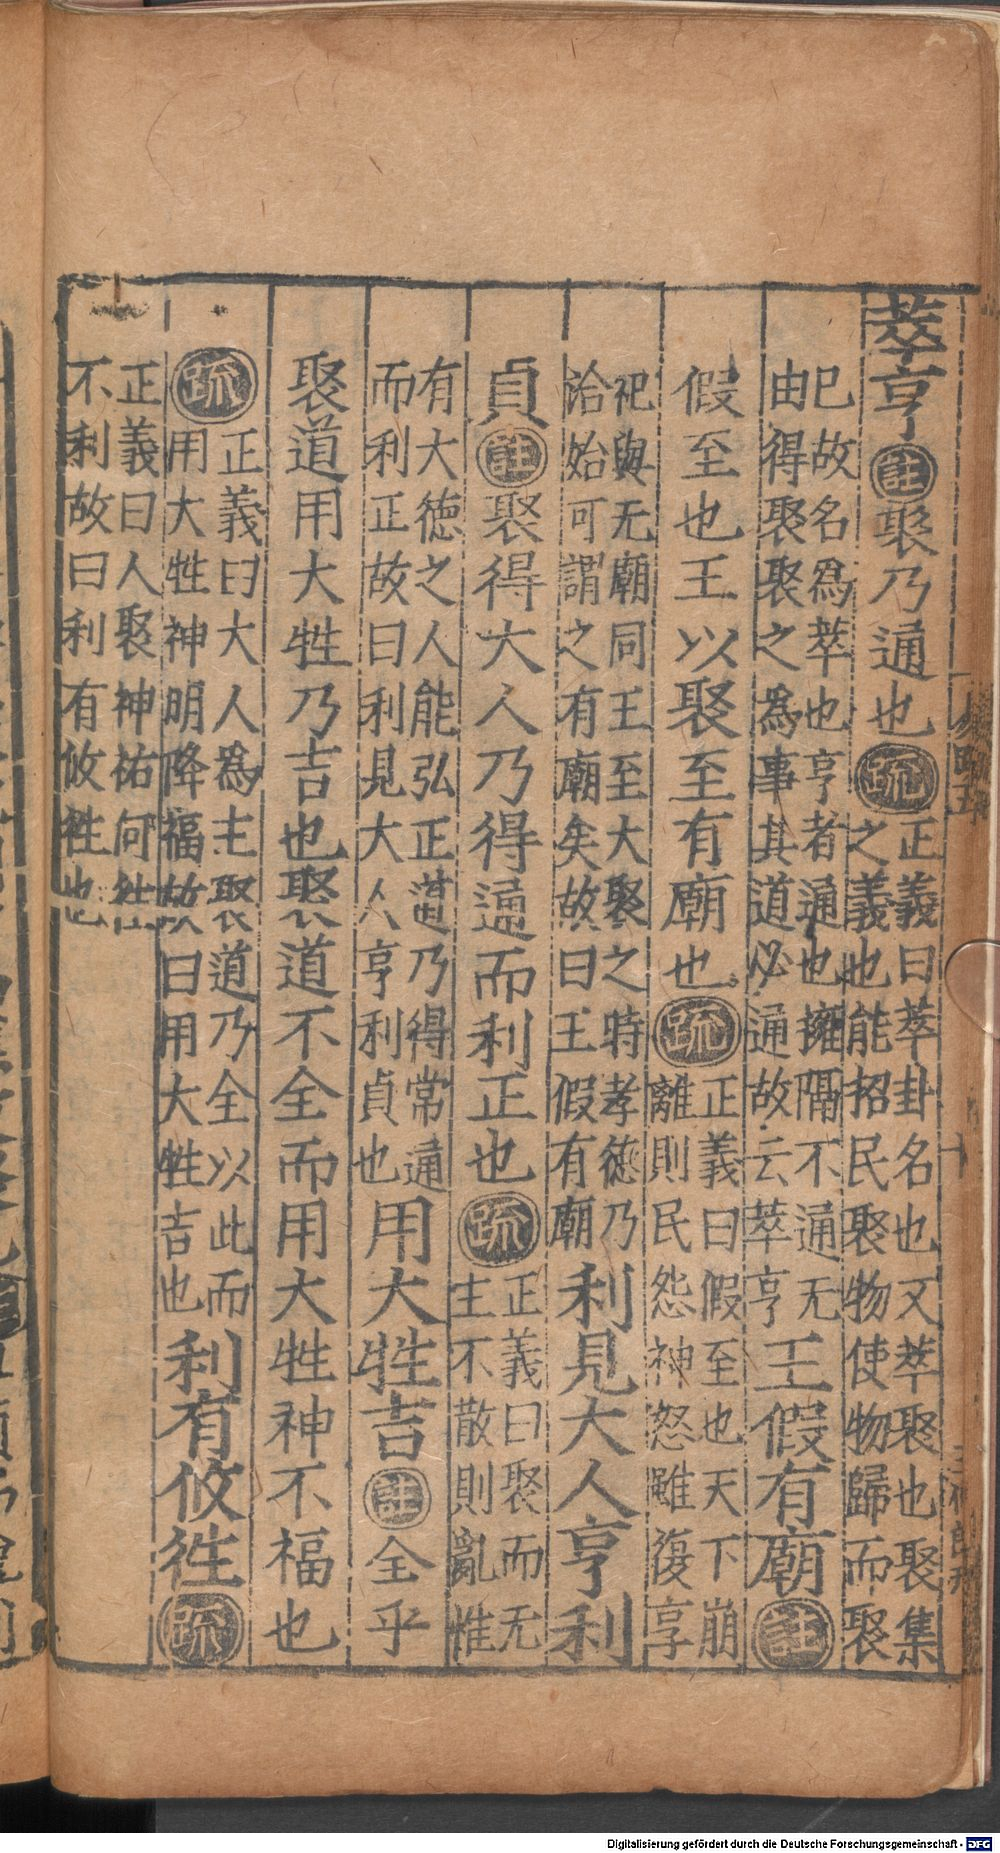 萃亨註聚乃通也疏正義曰萃卦名也又萃聚也聚集之義也能招民聚物使物歸而聚
已故名爲萃也亨者通也擁隔不通无由得聚聚之爲事其道必通故云萃亨王假有廟註
假至也王以聚至有廟也疏正義曰假至也天下崩離則民怨神怒雖復享
祀與无廟同王至大聚之時孝德乃洽始可謂之有廟矣故曰王假有廟利見大人亨利
貞註聚得大人乃得通而利正也疏正義曰聚而无主不散則亂惟
有大德之人能弘正道乃得常通而利正故曰利見大人亨利貞也用大牲吉註全乎
聚道用大牲乃吉也聚道不全而用大牲神不福也
疏正義曰大人爲主聚道乃全以此而用大牲神明降福故曰用大牲吉也利有攸徃疏
正義曰人聚神祐何徃不利故曰利有攸徃也
Digitalisierung gefördert durch die Deutsche Forschungsgemeinschaft - DFG